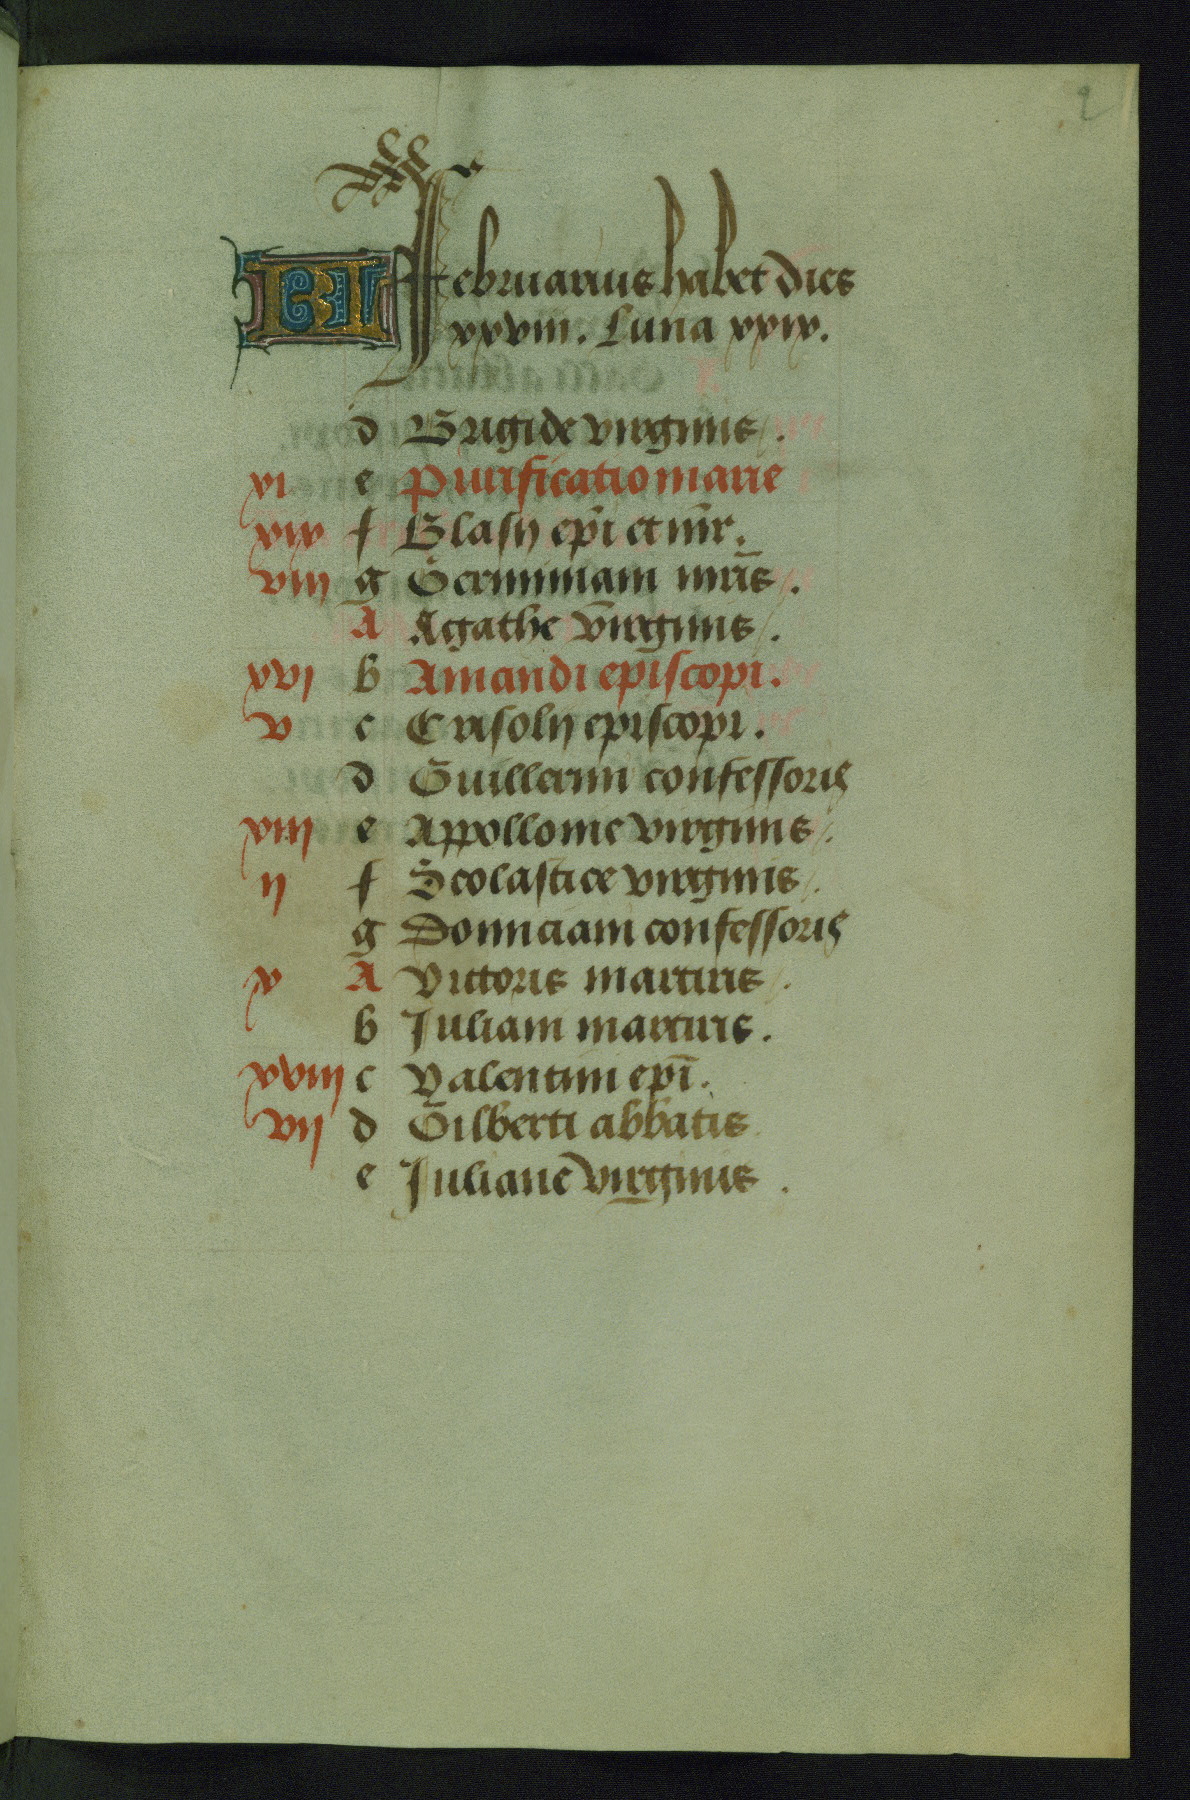 2
KL Februarius habet dies
xxviii. Luna xxix.
d Brigide virginis.
xi e Purificatio marie
xix f Blasij ep̄i et mr̄.
viii g Germiniani mr̄is.
A Agathe virginis.
xvi b Amandi episcopi.
v c Crisolij episcopi.
d Guillermi confessoris
xiii e Appollonie virginis.
ij f Scolastice virginis.
g Donnciani confessoris
x A Victoris martiris.
b Iuliani martiris.
xviii c Valentini ep̄i.
vii d Gilberti abbatis
e Iuliane virginis.